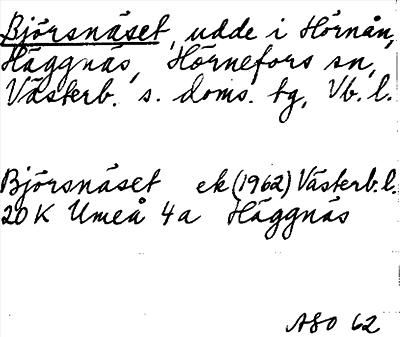 Björsnäset, udde i Hörnån,
Häggnäs, Hörnefors sn,
Västerb. s. doms. tg, Vb. l.
Björsnäset ek (1962) Västerb. l.
20 K Umeå 4a Häggnäs
ASO 62